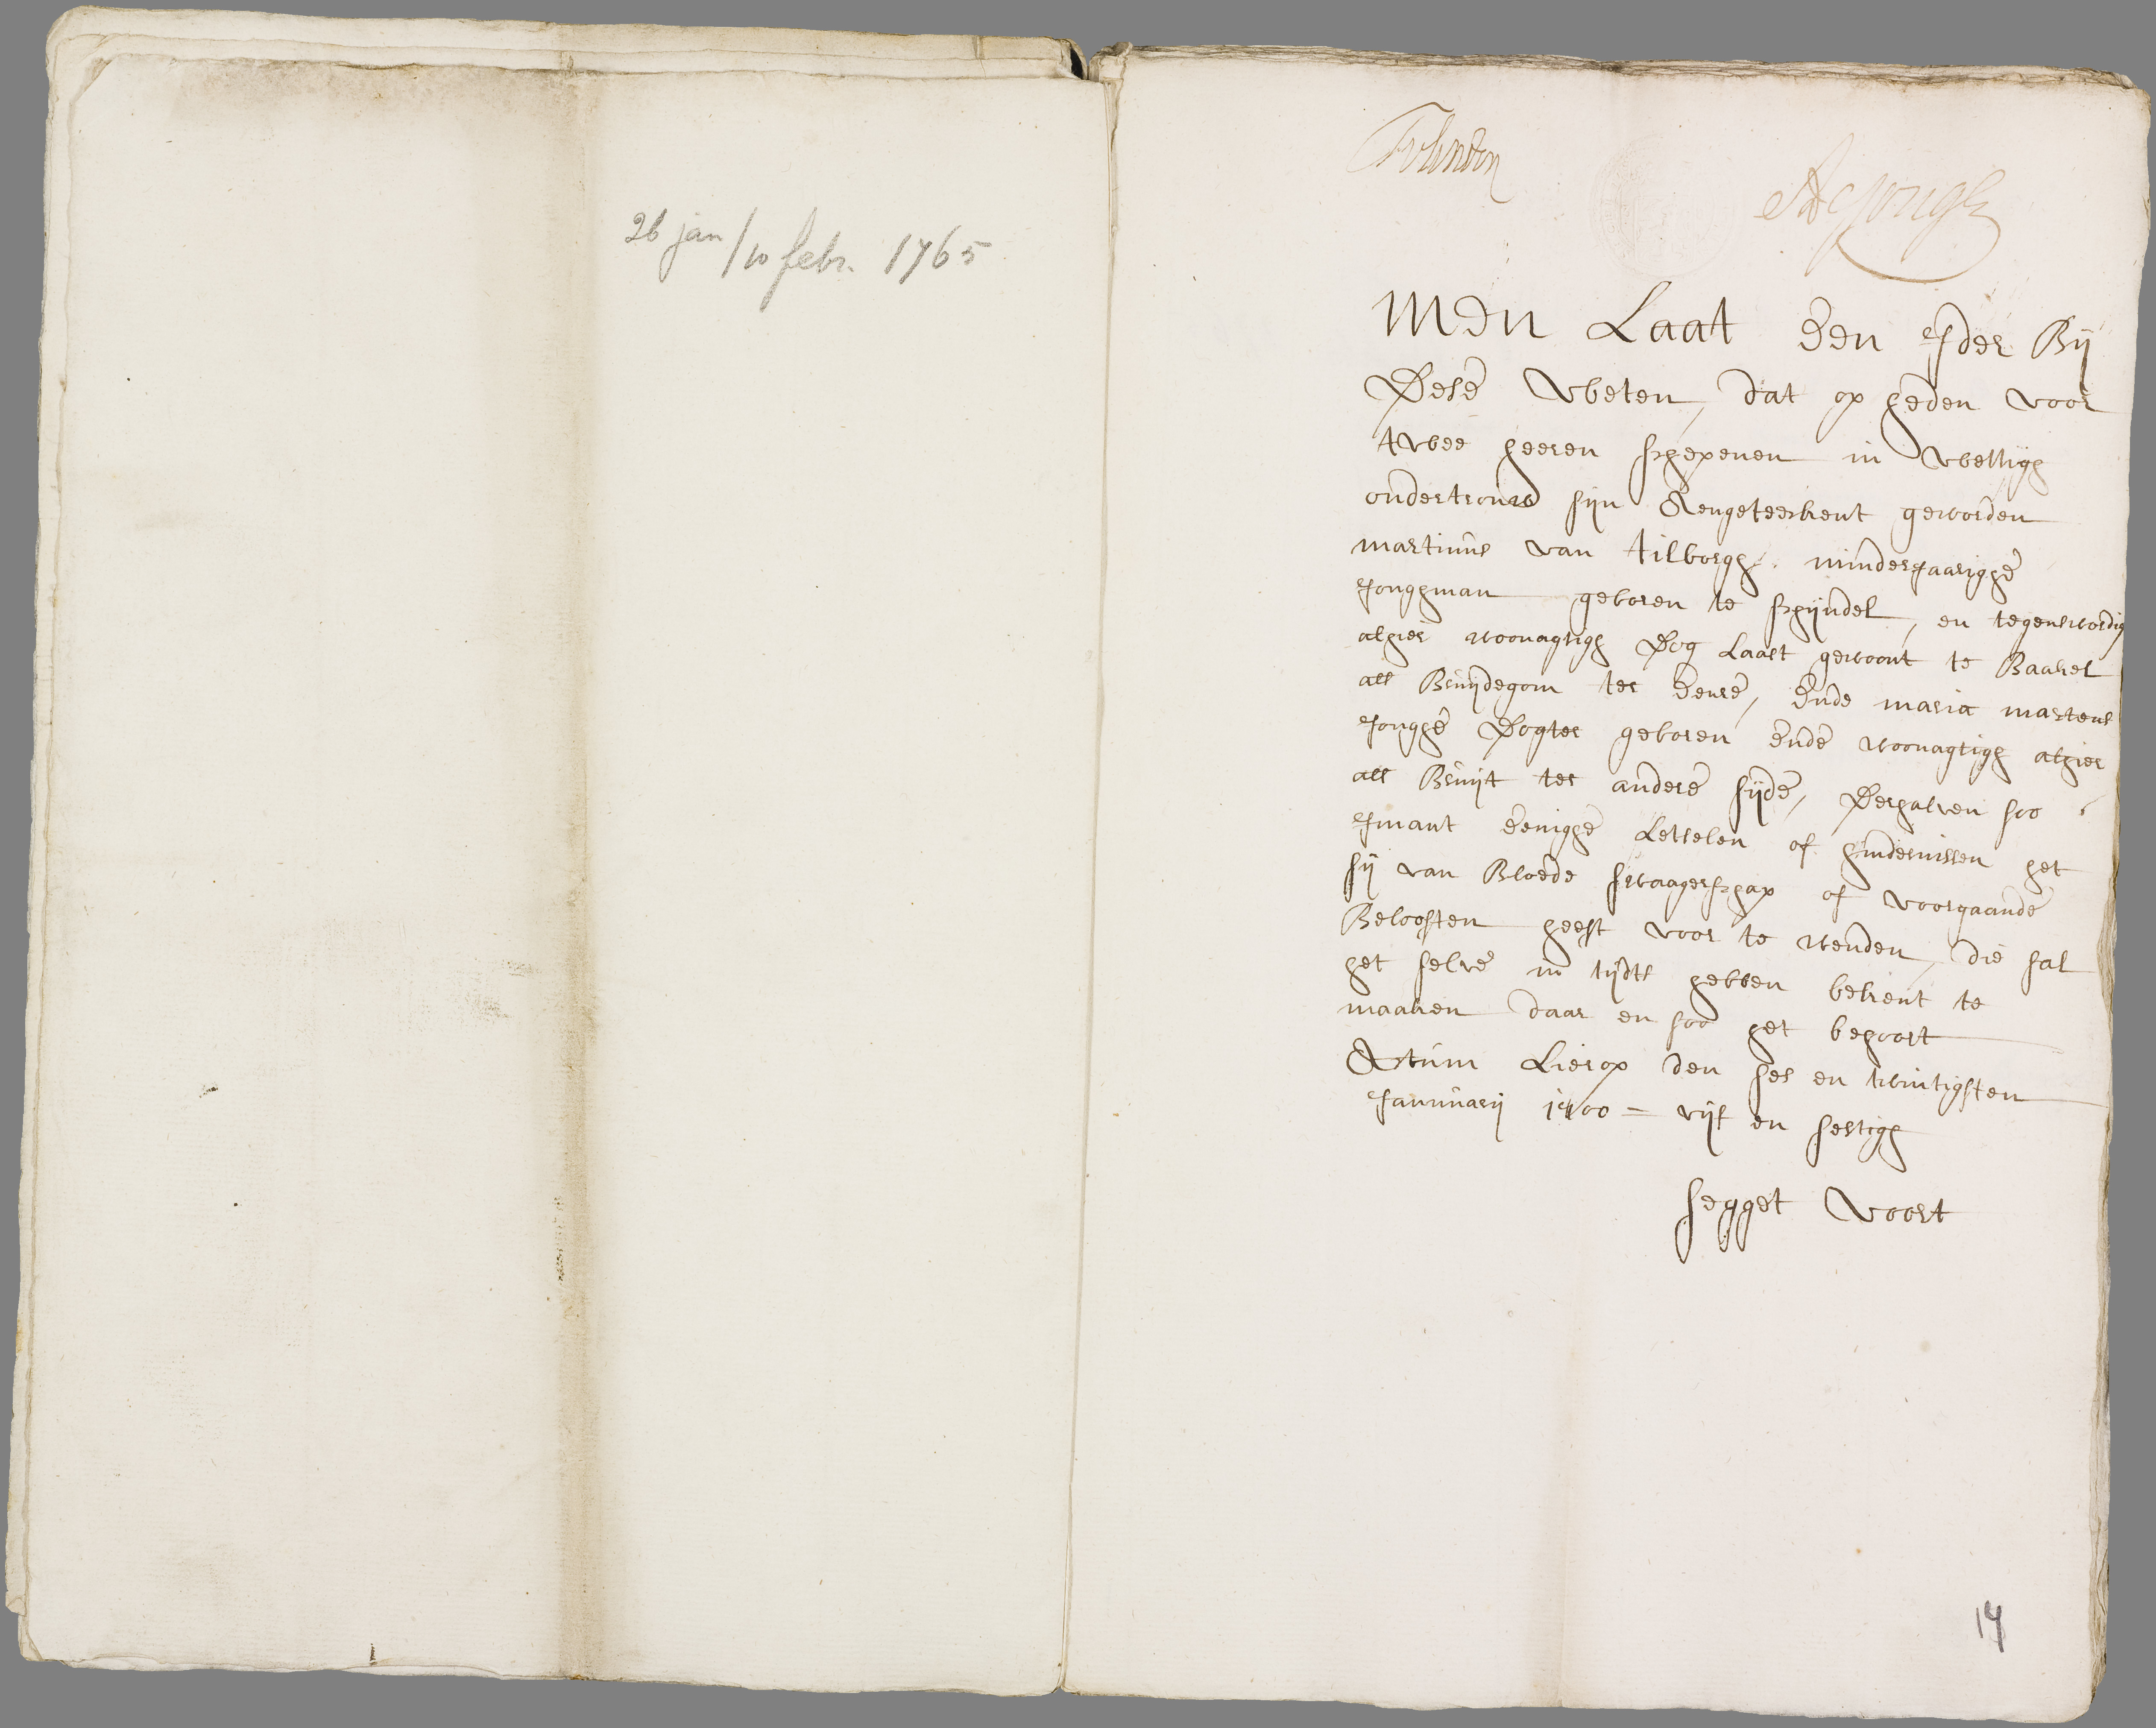 26 jan/10 febr. 1765
Men Laat Een ider Bij
Dese Weten, dat op heden voor
twee heeren schepenen in wettigh
ondertrouw sijn Aengeteekent geworden
martinus van tilborgh. minderjaarigghe
Jonghman geboren te schijndel, en tegenswordig
alhier woonagtigh Dog Laast gewoont te Baakel
als Bruijdegom ter Eenre, Ende maria martens
Jonghe Dogter geboren Ende woonagtigh alhier
als Bruijt ter andere sijde, Derhalven soo
Jmant Eenighe Letselen of hindernissen het
sij van Bloede swaagerschap of voorgaande
Beloften heeft voor te wenden, die sal
het selve in tijdts hebben bekent te
maaken daar en soo het behoort
Actum Lierop den ses en twintigsten
Januuarij 1700 = vijf en sestigh
segget voort